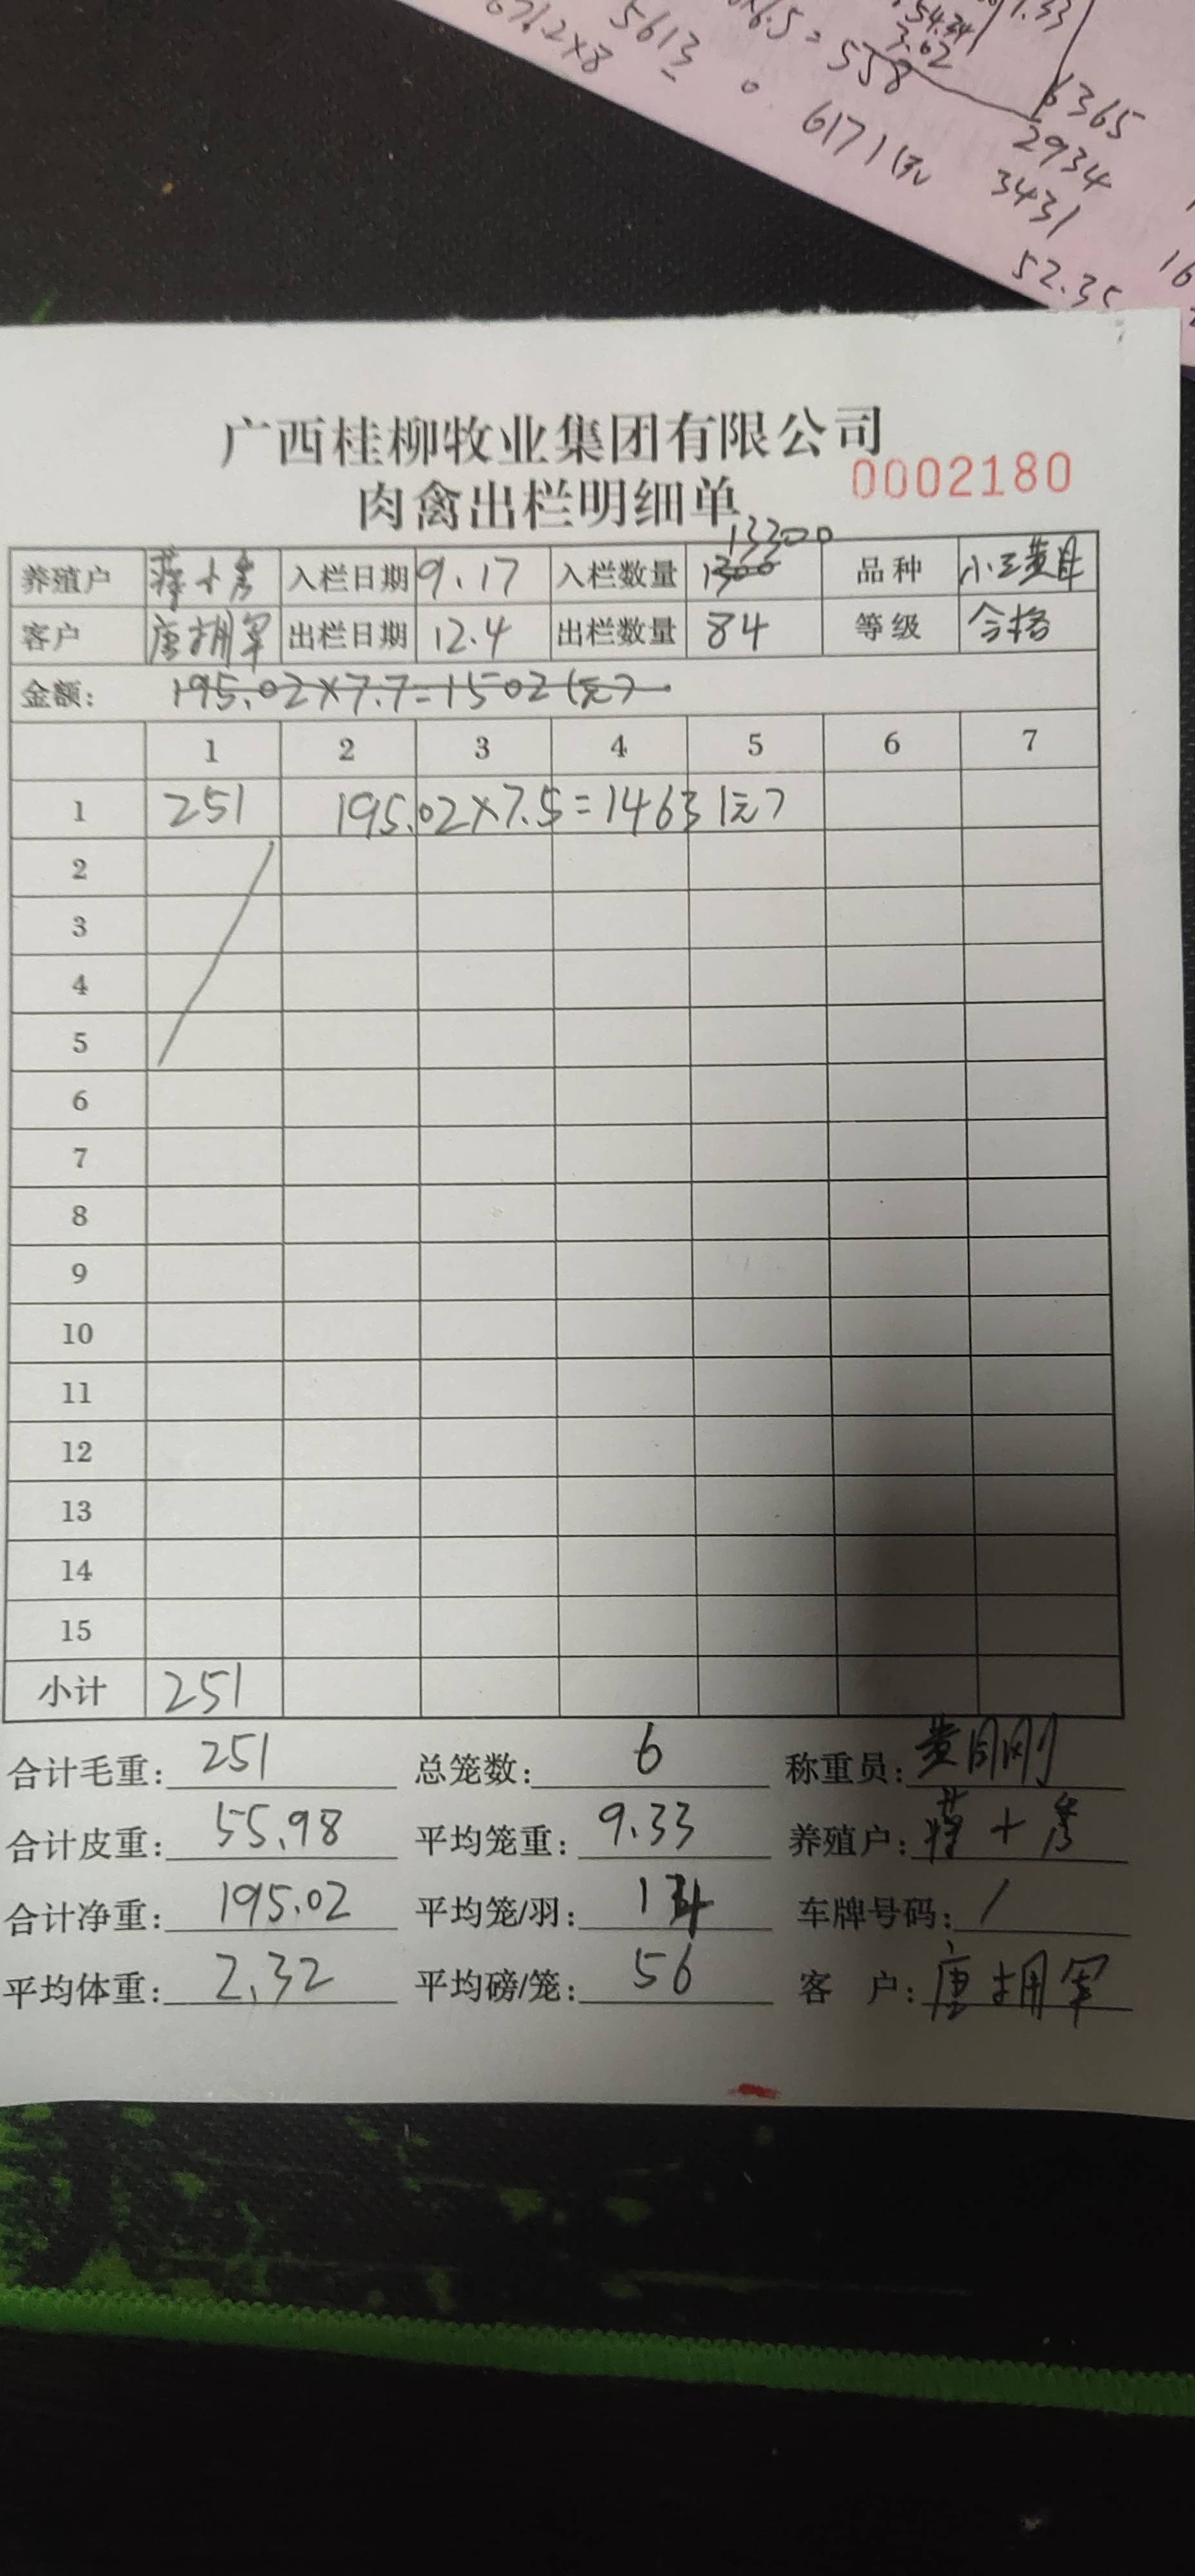 671.2×8
5613
×6.5=558
54.34
3.02
1.33
6171(元)
6365
2934
3431
52.35
16
广西桂柳牧业集团有限公司
肉禽出栏明细单
0002180
13300
养殖户 蒋十秀 入栏日期 9.17 入栏数量 1300 品种 小三黄母
客户 唐拥军 出栏日期 12.4 出栏数量 84 等级 合格
金额: 195.02×7.7=1502(元)
1 2 3 4 5 6 7
1 251 195.02×7.5=1463(元)
2
3
4
5
6
7
8
9
10
11
12
13
14
15
小计 251
合计毛重: 251 总笼数: 6 称重员: 黄周刚
合计皮重: 55.98 平均笼重: 9.33 养殖户: 蒋十秀
合计净重: 195.02 平均笼/羽: 14 车牌号码: /
平均体重: 2.32 平均磅/笼: 56 客 户: 唐拥军